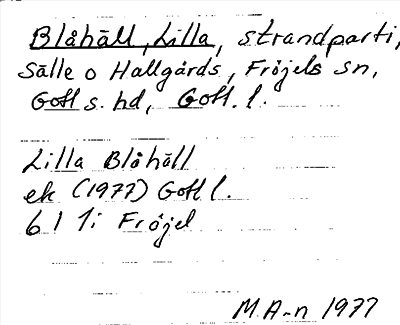 Blåhäll, Lilla, strandparti,
Sälle o Hallgårds, Fröjels sn,
Gotl s. hd, Gotl. l.
Lilla Blåhäll
ek (1977) Gotl l.
6 I 1i Fröjel
M A-n 1977